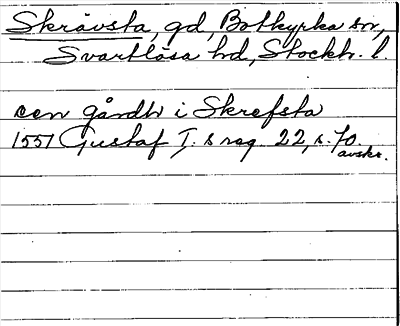 Skrävsta, gd, Botkyrka sn,
Svartlösa hd, Stockh. l.
een gårdh i Skrefsta
1557 Gustaf I. s reg. 22, s. 70.
avskr.